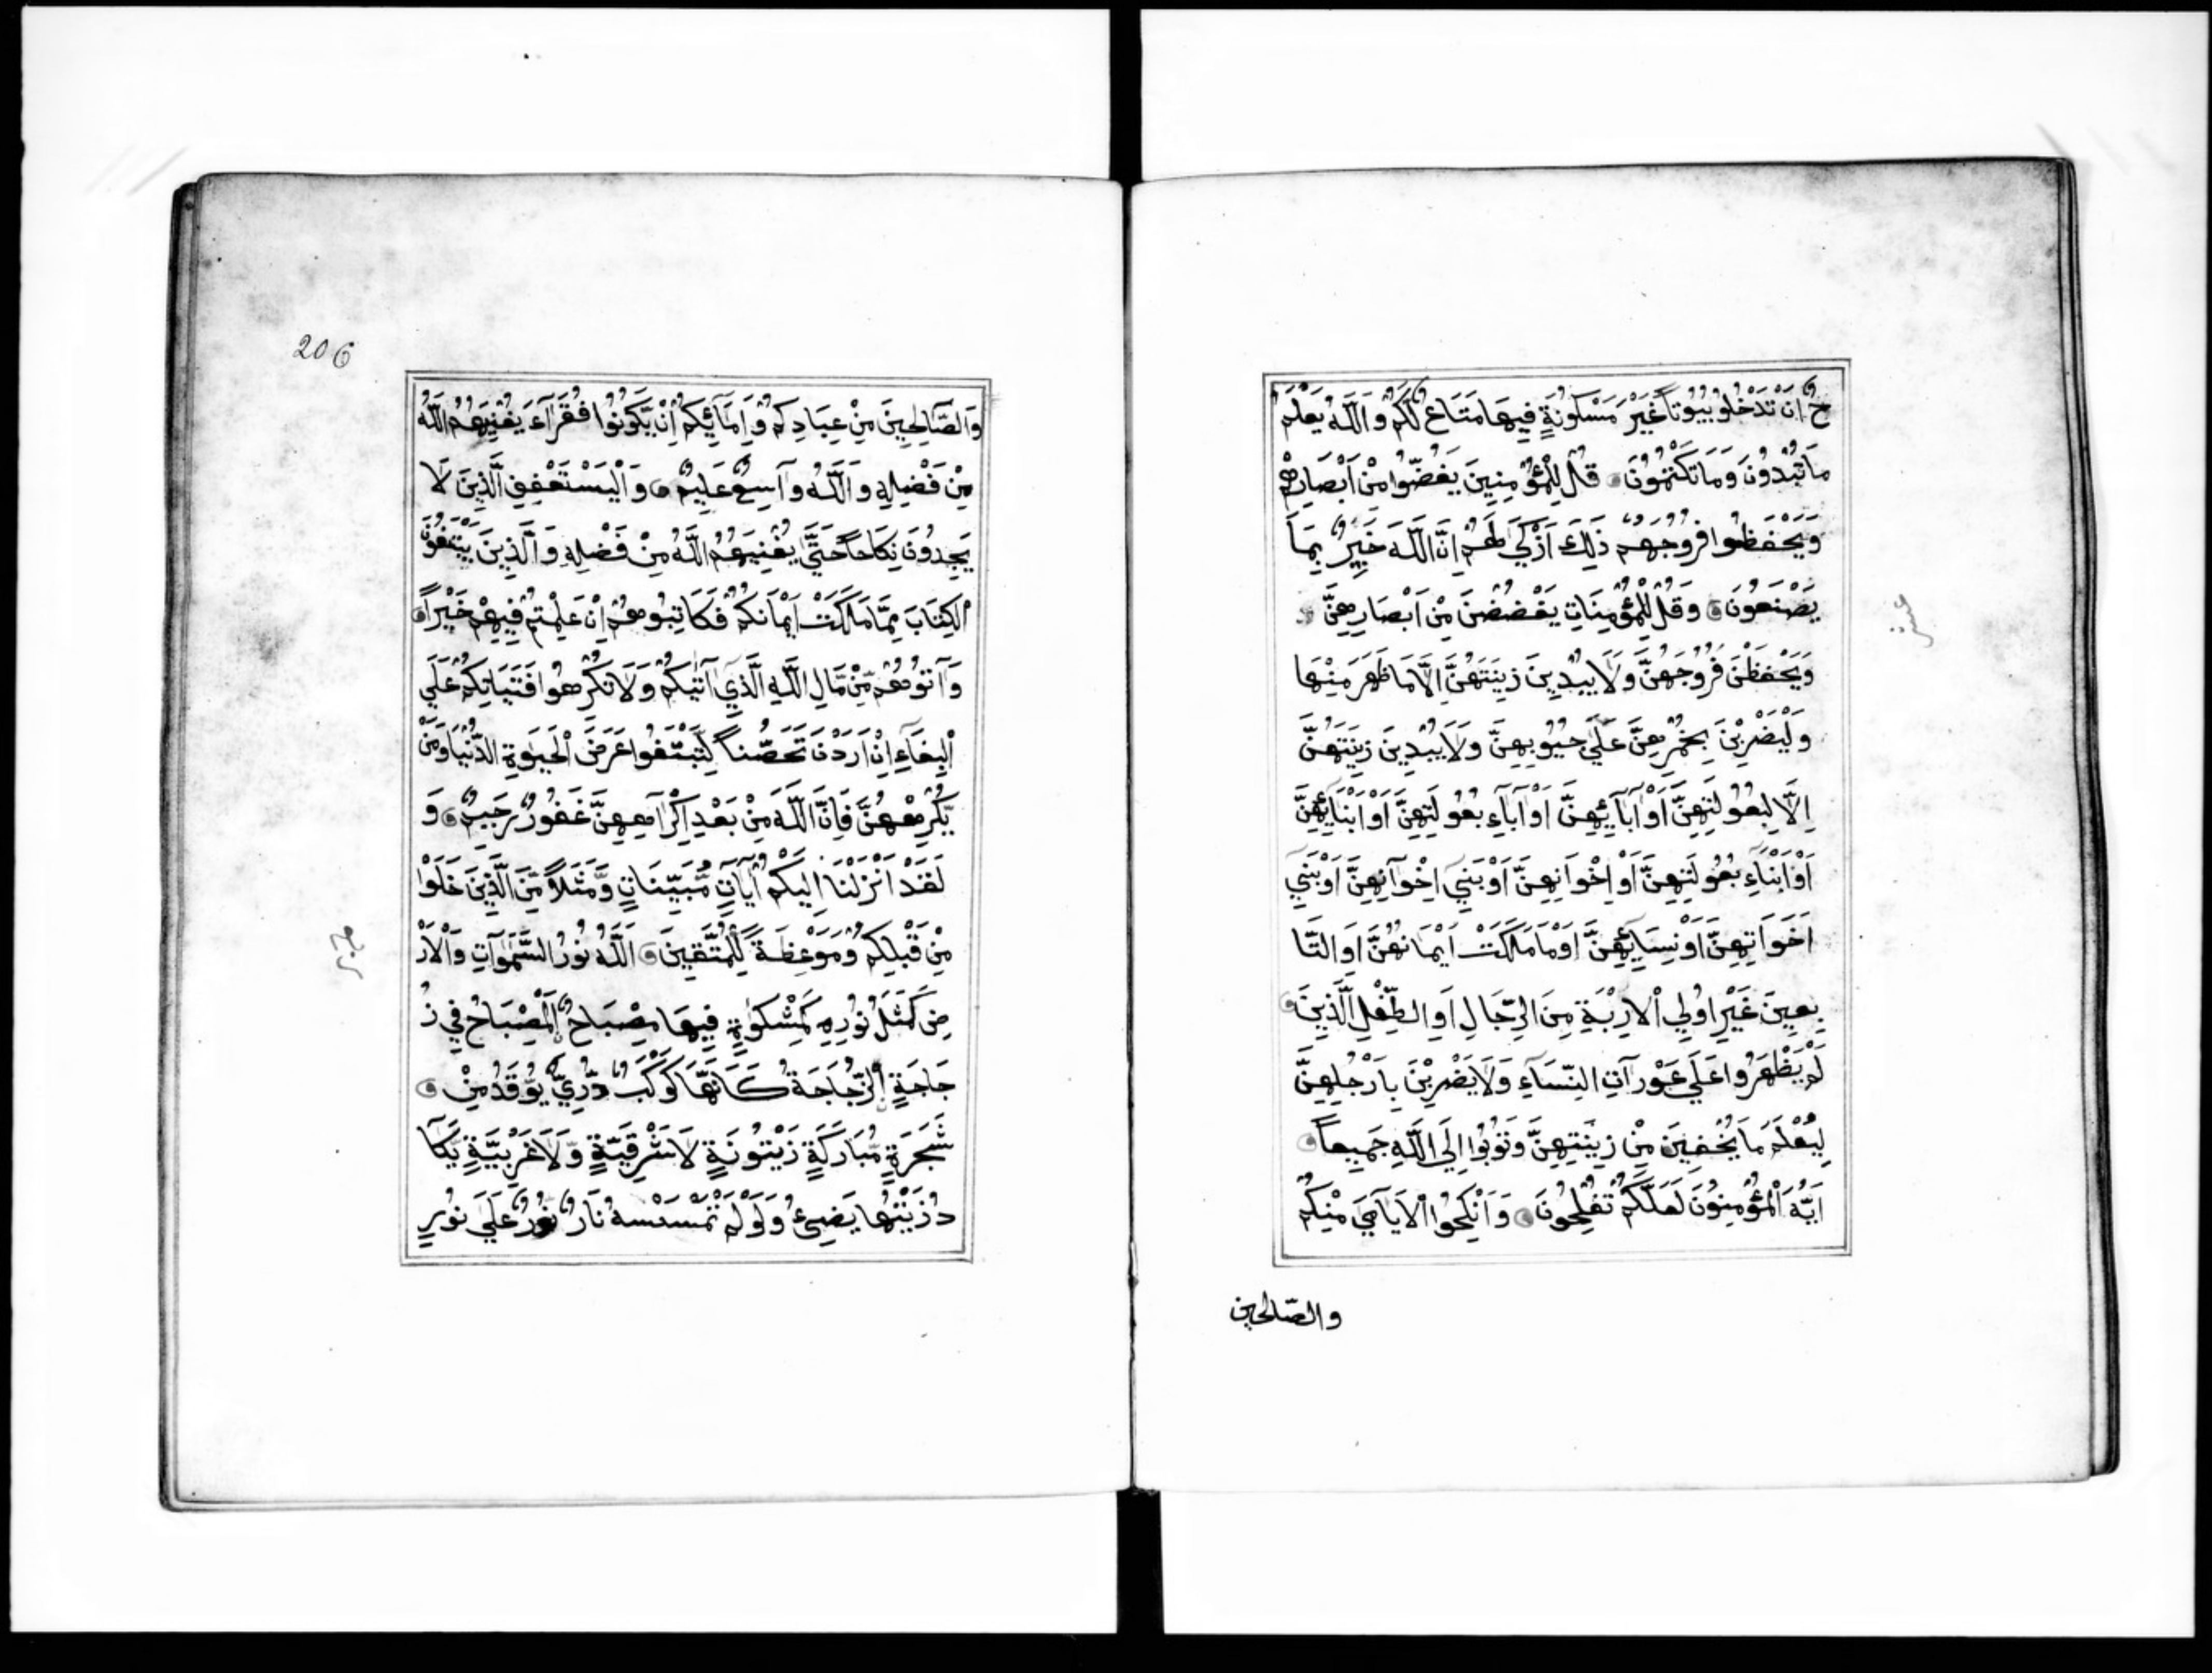 حٌ اَنْ تَدْخُلُو بُيُوتاً غَيْرَ مَسْكُونَةٍ فِيهَا مَتَاعٌ لَكُمْ وَاَللَّهُ يَعْلَمُ
مَا تُبْدُونَ وَمَا تَكْتُمُونَ قُلْ لِلْمُؤْمِنِينَ يَغُضُّوا مِنْ اَبْصَارِهِمْ
وَيَحْفَظُوا فُرُوجَهُمْ ذَلِكَ اَزْكَي لَهُمْ اِنَّ اللَّهَ خَبِيرٌ بِمَا
يَصْنَعُونَ وَقُلْ لِلْمُؤْمِنَاتِ يَغْضُضْنَ مِنْ اَبْصَارِهِنَّ
وَيَحْفَظْنَ فُرُوجَهُنَّ وَلَا يُبْدِينَ زِينَتَهُنَّ اِلَّا مَا ظَهَرَ مِنْهَا
وَلْيَضْرِبْنَ بِخُمُرِهِنَّ عَلَي جُيُوبِهِنَّ وَلَا يُبْدِينَ زِينَتَهُنَّ
اِلَّا لِبُعُولَتِهِنَّ اَوْ اَبَآئِهِنَّ اَوْ آبَآءِ بُعُولَتِهِنَّ اَوْ اَبْنَآئِهِنَّ
اَوْ اَبْنَآءِ بُعُولَتِهِنَّ اَوْ اِخْوَانِهِنَّ اَوْ بَنِي اِخْوَآنِهِنَّ اَوْ بَنِي
اَخَوَاتِهِنَّ اَوْ نِسَآئِهِنَّ اَوْ مَا مَلَكَتْ اَيْمَانُهُنَّ اَوِ التَّا
بِعِينَ غَيْرِ اُولِي اْلاِرْبَةِ مِنَ الرِّجَالِ اَوِ الطِّفْلِ الَّذِينَ
لَمْ يَظْهَرُوا عَلَي عَوْرَآتِ النِّسَآءِ وَلَا يَضْرِبْنَ بِاَرْجُلِهِنَّ
لِيُعْلَمَ مَا يُخْفِينَ مِنْ زِينَتِهِنَّ وَتُوبُوا اِلَي اللَّهِ جَمِيعاً
اَيُّهَ اَلْمُؤْمِنُونَ لَعَلَّكُمْ تُفْلِحُونَ وَاَنْكِحُوا اْلاَيَآمَي مِنْكُمْ
والصّالحين
206
وَالصَّآلِحِينَ مِنْ عِبَادِكُمْ وَاِمَآئِكُمْ اِنْ يَّكُونُوا فُقَرَآءَ يُغْنِيَهُمُ اللَّهُ
مِنْ فَضْلِهِ وَاَللَّهُ وآسِعٌ عَلِيمٌ وَاْليَسْتَعْفِفِ الَّذِينَ لَا
يَجِدُونَ نِكَاحاً حَتَّي يُغْنِيَهُمُ اللَّهُ مِنْ فَضْلِهِ وَاَلَّذِينَ يَبْتَغُونَ
اْلكِتَابَ مِمَّا مَلَكَتْ اَيْمَانُكُمْ فَكَاتِبُوهُمْ اِنْ عَلِمْتُمْ فِيهِمْ خَيْراً
وَآتُوهُمْ مِّنْ مَّالِ اللَّهِ الَّذِي آتَيكُمْ وَلَا تُكْرِهُوا فَتَيَاتِكُمْ عَلَي
اْلبِغَآءِ اِنْ اَرَدْنَ تَحَصُّناً لِّتَبْتَغُوا عَرَضَ اْلحَيَوةِ الدُّنْيَا وَمَنْ
يُّكْرِهْهُنَّ فَاِنَّ اللَّهَ مِنْ بَعْدِ اِكْرَآهِهِنَّ غَفُورٌ رَحِيمٌ وَ
لَقَدْ اَنْزَلْنَا اِلَيْكُمْ آيَاتٍ مُّبَيِّنَاتٍ وَّمَثَلاً مِّنَ الَّذِينَ خَلَوْا
مِنْ قَبْلِكُمْ وَمَوْعِظَةً لِّلْمُتَّقِينَ اَللَّهُ نُورُ السَّمَوَآتِ وَاْلاَرْ
ضِ كَمَثَلُ نُورِهِ كَمِشْكَوةٍ فِيهَا مِصْبَاحٌ اَلْمِصْبَاحُ فِي زُ
جَاجَةٍ اَلزُّجَاجَةُ كَاَنَّهَا كَوْكَبٌ دُرِّيٌّ يُوقَدُ مِنْ
شَجَرَةٍ مُّبَارَكَةٍ زَيْتُونَةٍ لَا شَرْقِيَّةٍ وَّلَا غَرْبِيَّةٍ يَّكَآ
دُ زَيْتُهَا يَضِيءُ وَلَوْ لَمْ تَمْسَسْهُ نَارٌ نُورٌ عَلَي نُورٍ